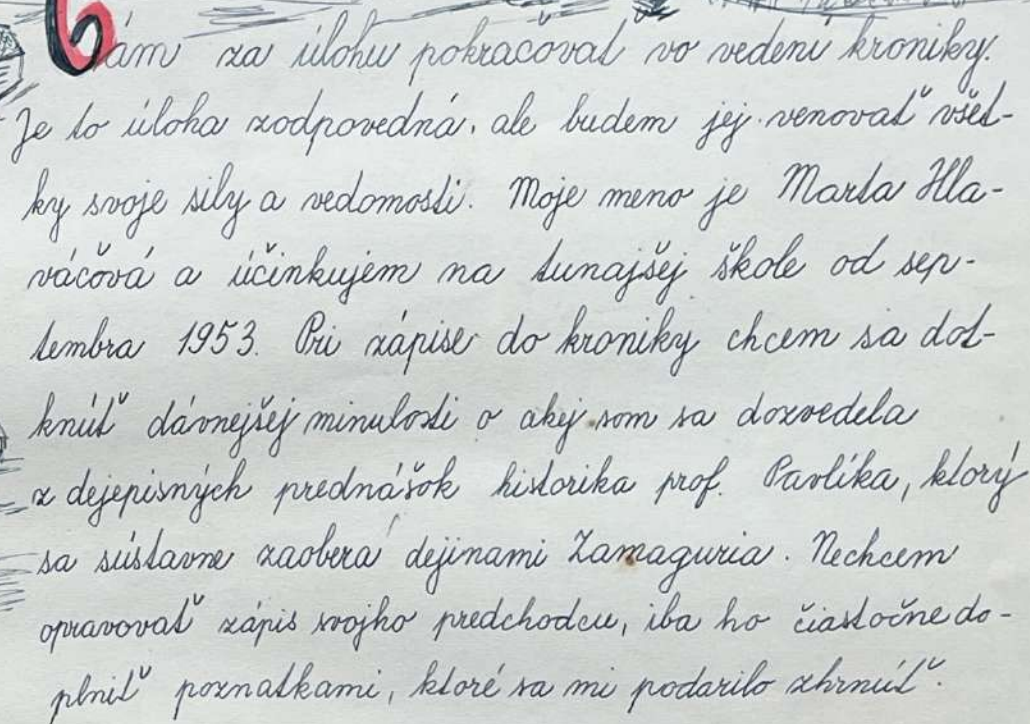 Mám za úlohu pokračovať vo vedení kroniky.
Je to úloha zodpovedná, ale budem jej venovať všet-
ky svoje sily a vedomosti. Moje meno je Marta Hla-
váčová a účinkujem na tunajšej škole od sep-
tembra 1953. Pri zápise do kroniky chcem sa dot-
knúť dávnejšej minulosti o akej som sa dozvedela
z dejepisných prednášok historika prof. Pavlíka, ktorý
sa sústavne zaoberá dejinami Zamaguria. Nechcem
opravovať zápis svojho predchodcu, iba ho čiastočne do-
plniť poznatkami, ktoré sa mi podarilo zhrnúť.